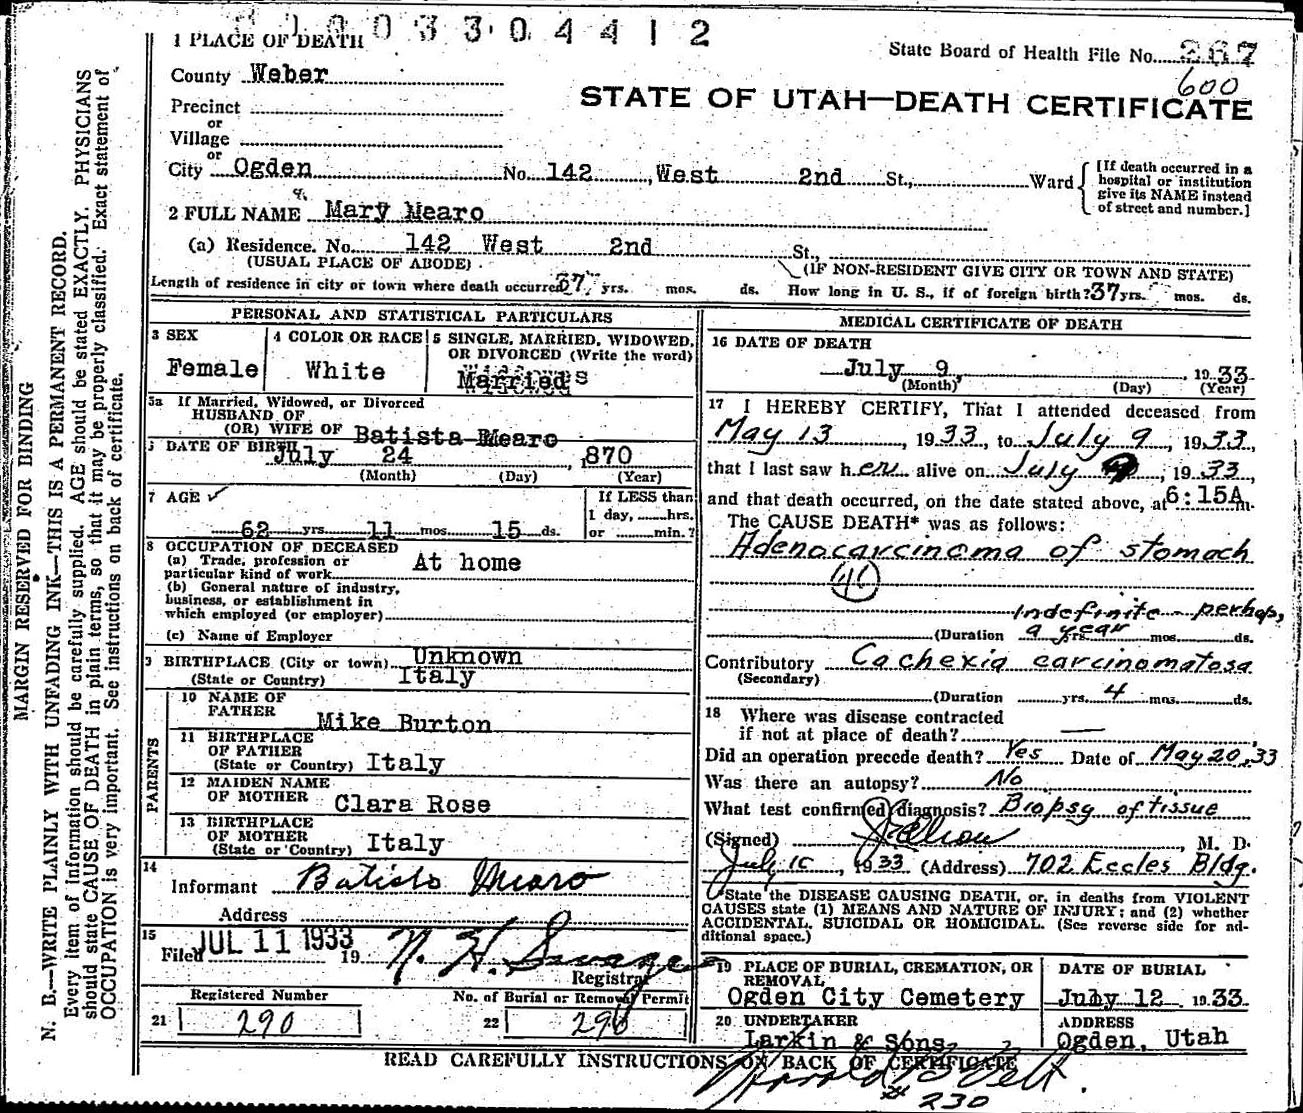 3 3 0 4 4 1 2
1 PLACE OF DEATH
State Board of Health File No. 267
600
County Weber
STATE OF UTAH—DEATH CERTIFICATE
Precinct
or
Village
or
City Ogden No. 142 West 2nd St., Ward
[If death occurred in a hospital or institution give its NAME instead of street and number.]
2 FULL NAME Mary Mearo
(a) Residence. No. 142 West 2nd St.,
(USUAL PLACE OF ABODE)
(IF NON-RESIDENT GIVE CITY OR TOWN AND STATE)
Length of residence in city or town where death occurred 37 yrs. mos. ds. How long in U. S., if of foreign birth? 37 yrs. mos. ds.
PERSONAL AND STATISTICAL PARTICULARS
3 SEX
Female
4 COLOR OR RACE
White
5 SINGLE, MARRIED, WIDOWED, OR DIVORCED (Write the word)
Married
5a If Married, Widowed, or Divorced
HUSBAND OF
(OR) WIFE OF Batista Mearo
6 DATE OF BIRTH July 24, 1870
(Month) (Day) (Year)
7 AGE
62 yrs. 11 mos. 15 ds.
If LESS than
1 day, hrs.
or min.?
8 OCCUPATION OF DECEASED
(a) Trade, profession or
particular kind of work At home
(b) General nature of industry,
business, or establishment in
which employed (or employer)
(c) Name of Employer
9 BIRTHPLACE (City or town) Unknown
(State or Country) Italy
PARENTS
10 NAME OF
FATHER Mike Burton
11 BIRTHPLACE
OF FATHER
(State or Country) Italy
12 MAIDEN NAME
OF MOTHER Clara Rose
13 BIRTHPLACE
OF MOTHER
(State or Country) Italy
14
Informant Batisto Mearo
Address
15
Filed JUL 11 1933 19 N. H. Savage
Registrar
Registered Number
21 290
No. of Burial or Removal Permit
22 290
MEDICAL CERTIFICATE OF DEATH
16 DATE OF DEATH
July 9, 1933
(Month) (Day) (Year)
17 I HEREBY CERTIFY, That I attended deceased from
May 13, 1933, to July 9, 1933,
that I last saw her alive on July 9, 1933,
and that death occurred, on the date stated above, at 6:15A m.
The CAUSE DEATH* was as follows:
Adenocarcinoma of stomach
46
Indefinite - perhaps
(Duration a year yrs. mos. ds.
Contributory Cachexia carcinomatosa
(Secondary)
(Duration yrs. 4 mos. ds.
18 Where was disease contracted
if not at place of death? —
Did an operation precede death? Yes Date of May 20, 33
Was there an autopsy? No
What test confirmed diagnosis? Biopsy of tissue
(Signed) , M. D.
July 10, 1933 (Address) 702 Eccles Bldg.
*State the DISEASE CAUSING DEATH, or, in deaths from VIOLENT
CAUSES state (1) MEANS AND NATURE OF INJURY; and (2) whether
ACCIDENTAL, SUICIDAL OR HOMICIDAL. (See reverse side for additional space.)
19 PLACE OF BURIAL, CREMATION, OR
REMOVAL
Ogden City Cemetery
DATE OF BURIAL
July 12 1933
20 UNDERTAKER
Larkin & Sons
ADDRESS
Ogden, Utah
READ CAREFULLY INSTRUCTIONS ON BACK OF CERTIFICATE
# 230
MARGIN RESERVED FOR BINDING
N. B.—WRITE PLAINLY WITH UNFADING INK—THIS IS A PERMANENT RECORD.
Every item of information should be carefully supplied. AGE should be stated EXACTLY. PHYSICIANS
should state CAUSE OF DEATH in plain terms, so that it may be properly classified. Exact statement of
OCCUPATION is very important. See instructions on back of certificate.